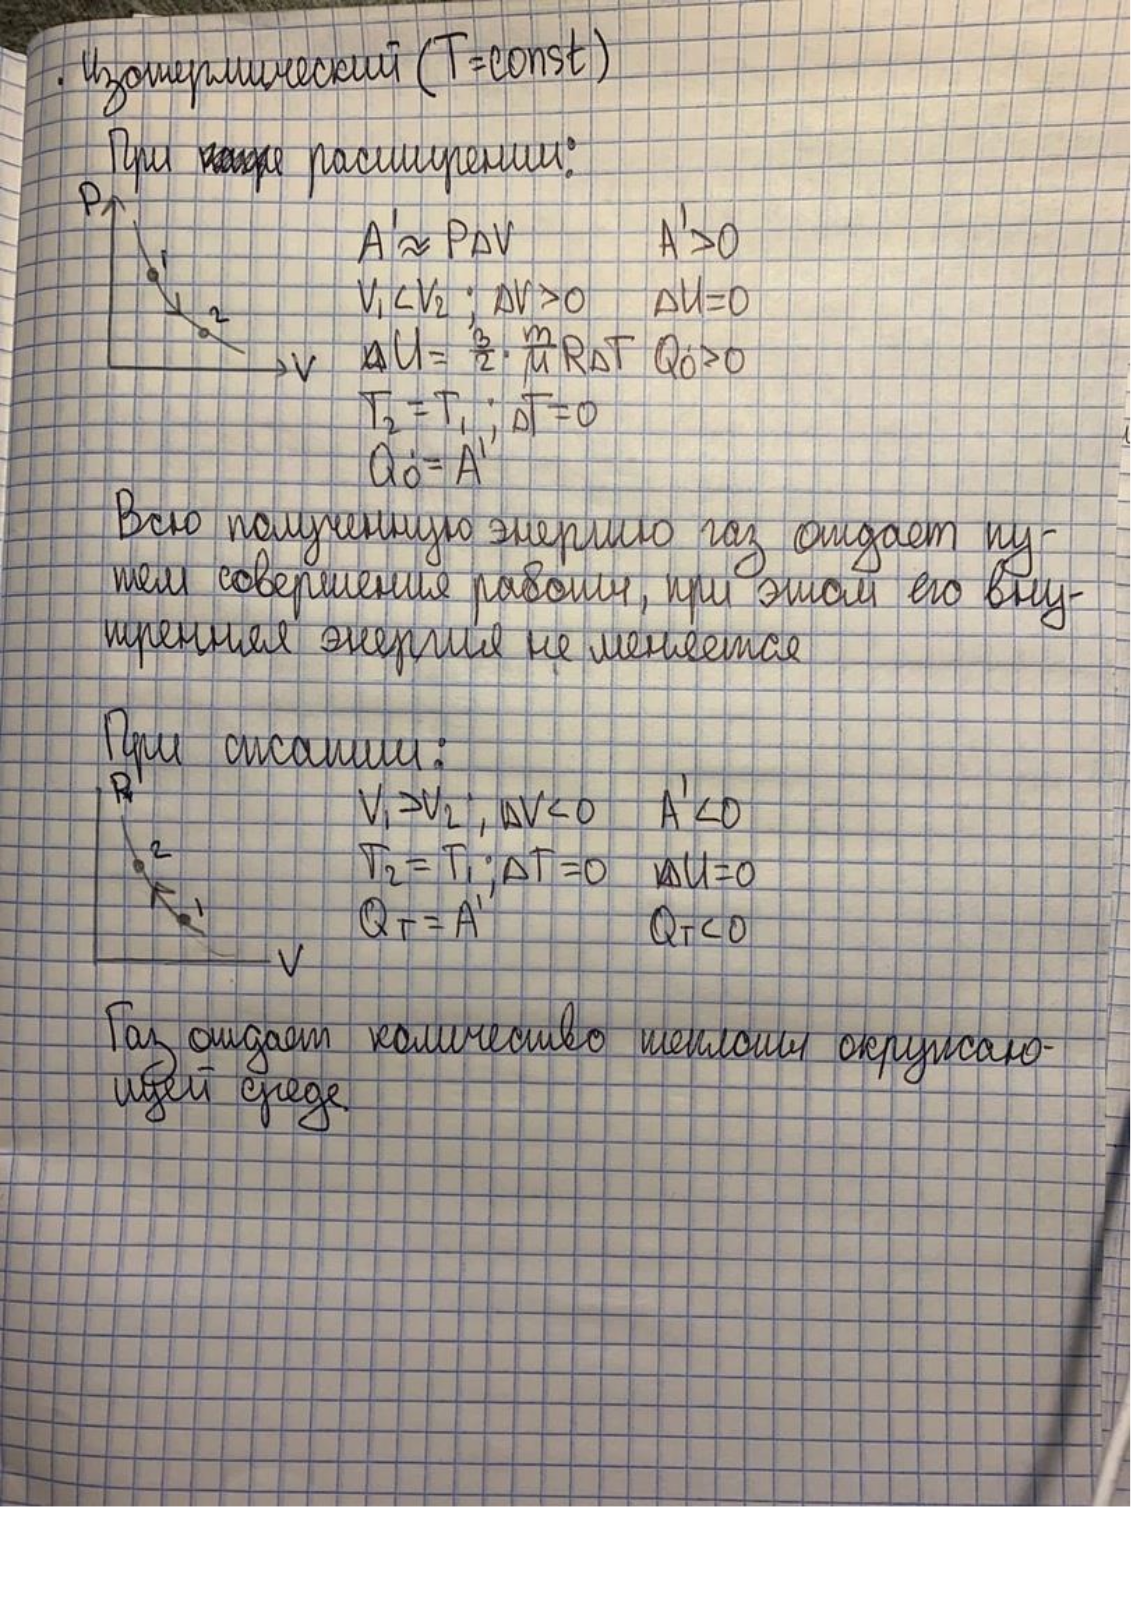 . Изотермический (T=const)
При расширении:
P
1
2
V
A' ≈ PΔV A'>0
V₁<V₂ ; ΔV>0 ΔU=0
ΔU= 3/2 · m/μ RΔT Q>0
T₂=T₁ ; ΔT=0
Q=A'
Всю полученную энергию газ отдает пу-
тем совершения работы, при этом его вну-
тренняя энергия не меняется
При сжатии:
P
2
1
V
V₁>V₂ ; ΔV<0 A'<0
T₂=T₁ ; ΔT=0 ΔU=0
Qт=A' Qт<0
Газ отдает количество теплоты окружаю-
щей среде